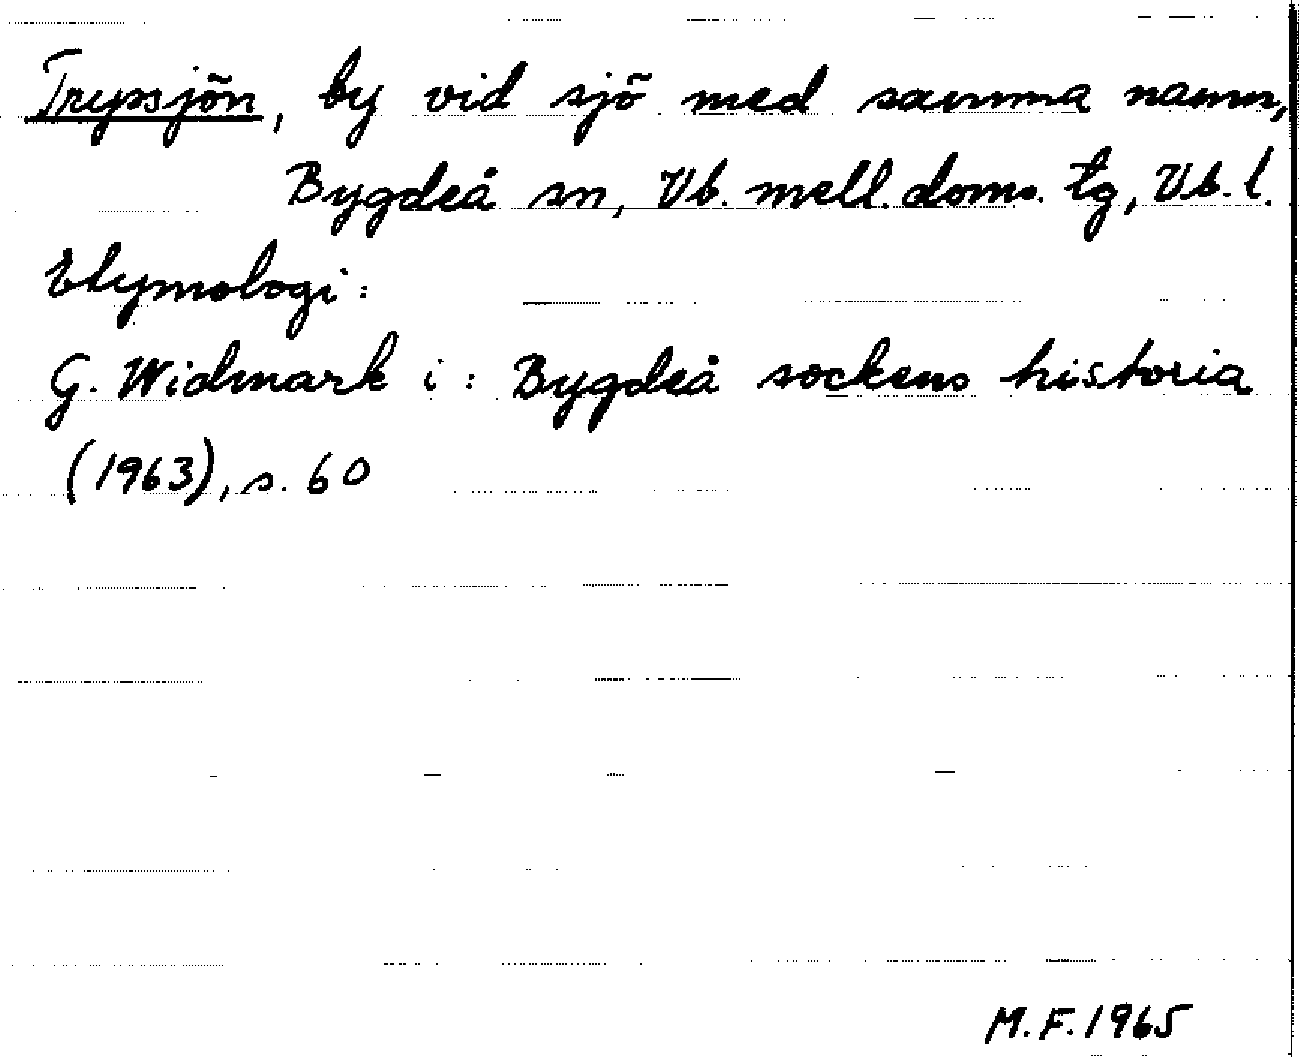 Trypsjön, by vid sjö med samma namn,
Bygdeå sn, Vb. mell. doms. tg, Vb. l.
Etymologi:
G. Widmark i: Bygdeå sockens historia
(1963), s. 60
M.F. 1965